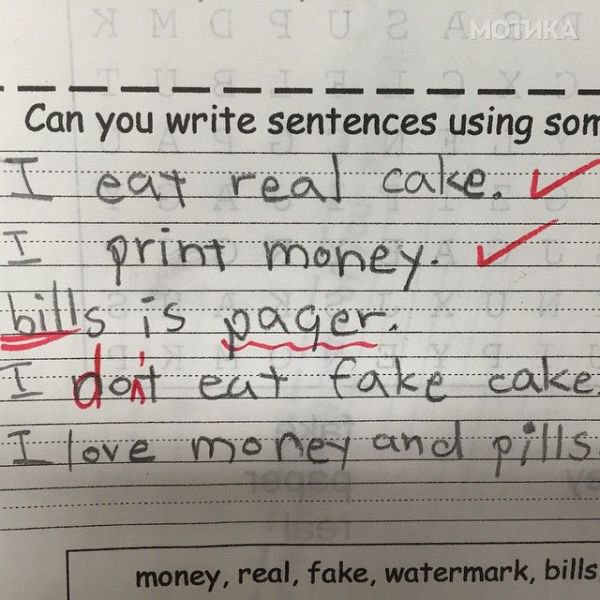 МОТИКА
Can you write sentences using som
I eat real cake.
I print money.
bills is pager.
I don't eat fake cake.
I love money and pills.
fake
paper
real
money, real, fake, watermark, bills